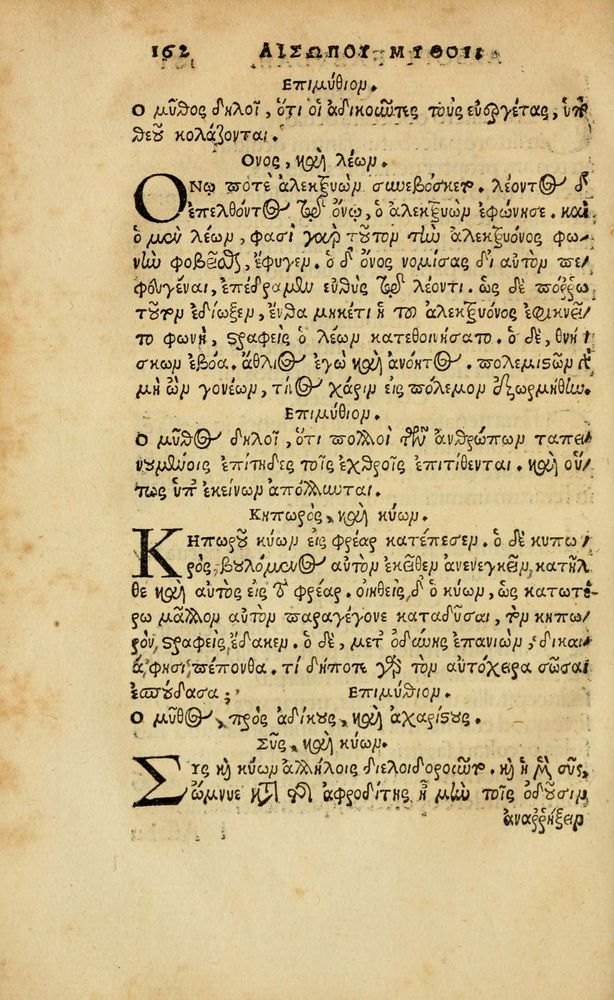 162 ΑΙΣΩΠΟΥ ΜΥΘΟΙ.
Επιμύθιον.
Ο μῦθος δηλοῖ, ὅτι οἱ ἀδικοῦντες τοὺς εὐεργέτας, ὑπὸ
θεοῦ κολάζονται.
Ονος, καὶ λέων.
ΟΝῳ ποτὲ ἀλεκτρυὼν συνεβόσκετο. λέοντος δ'
ἐπελθόντος τῷ ὄνῳ, ὁ ἀλεκτρυὼν ἐφώνησε. καὶ
ὁ μὲν λέων, φασὶ γὰρ τοῦτον τὴν ἀλεκτρυόνος φω-
νὴν φοβεῖσθαι, ἔφυγεν. ὁ δ' ὄνος νομίσας δι' αὐτὸν πε-
φευγέναι, ἐπέδραμεν εὐθὺς τῷ λέοντι. ὡς δὲ πόρρω
τοῦτον ἐδίωξεν, ἔνθα μηκέτι ἡ τοῦ ἀλεκτρυόνος ἐφικνεῖ-
το φωνὴ, στραφεὶς ὁ λέων κατεθοινήσατο. ὁ δὲ, θνή-
σκων ἐβόα. ἄθλιος ἐγὼ καὶ ἀνόητος. πολεμιστῶν
μὴ ὢν γονέων, τίνος χάριν εἰς πόλεμον ἐξωρμήθην.
Επιμύθιον.
Ο μῦθος δηλοῖ, ὅτι πολλοὶ τῶν ἀνθρώπων ταπει-
νουμένοις ἐπίτηδες τοῖς ἐχθροῖς ἐπιτίθενται. καὶ οὕ-
τως ὑπ' ἐκείνων ἀπόλλυνται.
Κηπωρὸς, καὶ κύων.
ΚΗπωροῦ κύων εἰς φρέαρ κατέπεσεν. ὁ δὲ κηπω-
ρὸς, βουλόμενος αὐτὸν ἐκεῖθεν ἀνενεγκεῖν, κατῆλ-
θε καὶ αὐτὸς εἰς τὸ φρέαρ. οἰηθεὶς δ' ὁ κύων, ὡς κατωτέ-
ρω μᾶλλον αὐτὸν παραγέγονε καταδῦσαι, τὸν κηπω-
ρὸν, στραφεὶς, ἔδακεν. ὁ δὲ, μετ' ὀδύνης ἐπανιὼν, δίκαι-
α, φησι, πέπονθα. τί δήποτε γὰρ τὸν αὐτόχειρα σῶσαι
ἐσπούδασα; Επιμύθιον.
Ο μῦθος, πρὸς ἀδίκους, καὶ ἀχαρίστους.
Σῦς, καὶ κύων.
ΣΥς καὶ κύων ἀλλήλοις διελοιδοροῦντο. καὶ ἡ μὲν σῦς,
ὤμνυε κατὰ τῆς ἀφροδίτης ἦ μὴν τοῖς ὀδοῦσιν
ἀναρρήξειν